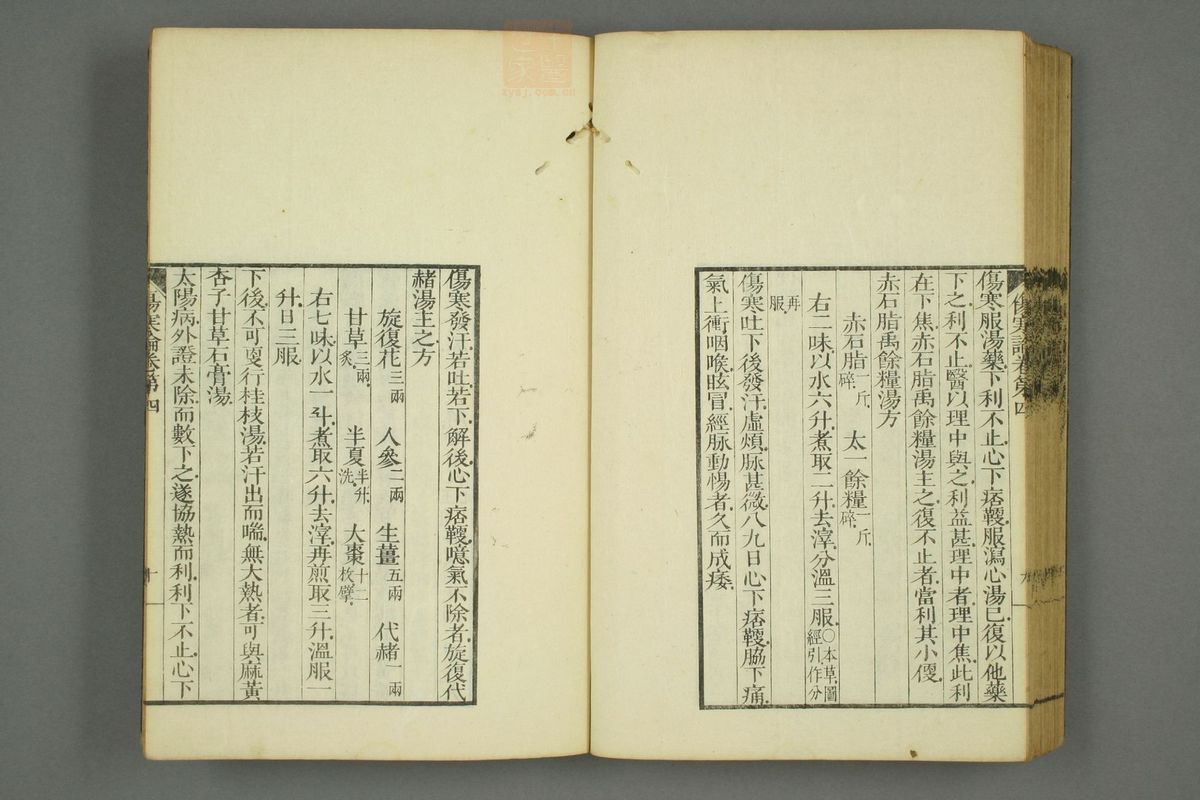 傷寒服湯藥下利不止心下痞鞕服瀉心湯已復以他藥
下之利不止醫以理中與之利益甚理中者理中焦此利
在下焦赤石脂禹餘糧湯主之復不止者當利其小便
赤石脂禹餘糧湯方
赤石脂一斤碎 太一餘糧一斤碎
右二味以水六升煮取二升去滓分溫三服○本草圖經引作分
再服
傷寒吐下後發汗虛煩脈甚微八九日心下痞鞕脇下痛
氣上衝咽喉眩冒經脈動惕者久而成痿
傷寒發汗若吐若下解後心下痞鞕噫氣不除者旋復代
赭湯主之方
旋復花三兩 人參二兩 生薑五兩 代赭一兩
甘草三兩炙 半夏半升洗 大棗十二枚擘
右七味以水一斗煮取六升去滓再煎取三升溫服一
升日三服
下後不可更行桂枝湯若汗出而喘無大熱者可與麻黃
杏子甘草石膏湯
太陽病外證未除而數下之遂協熱而利利下不止心下
傷寒論卷第四
十
zysj.com.cn